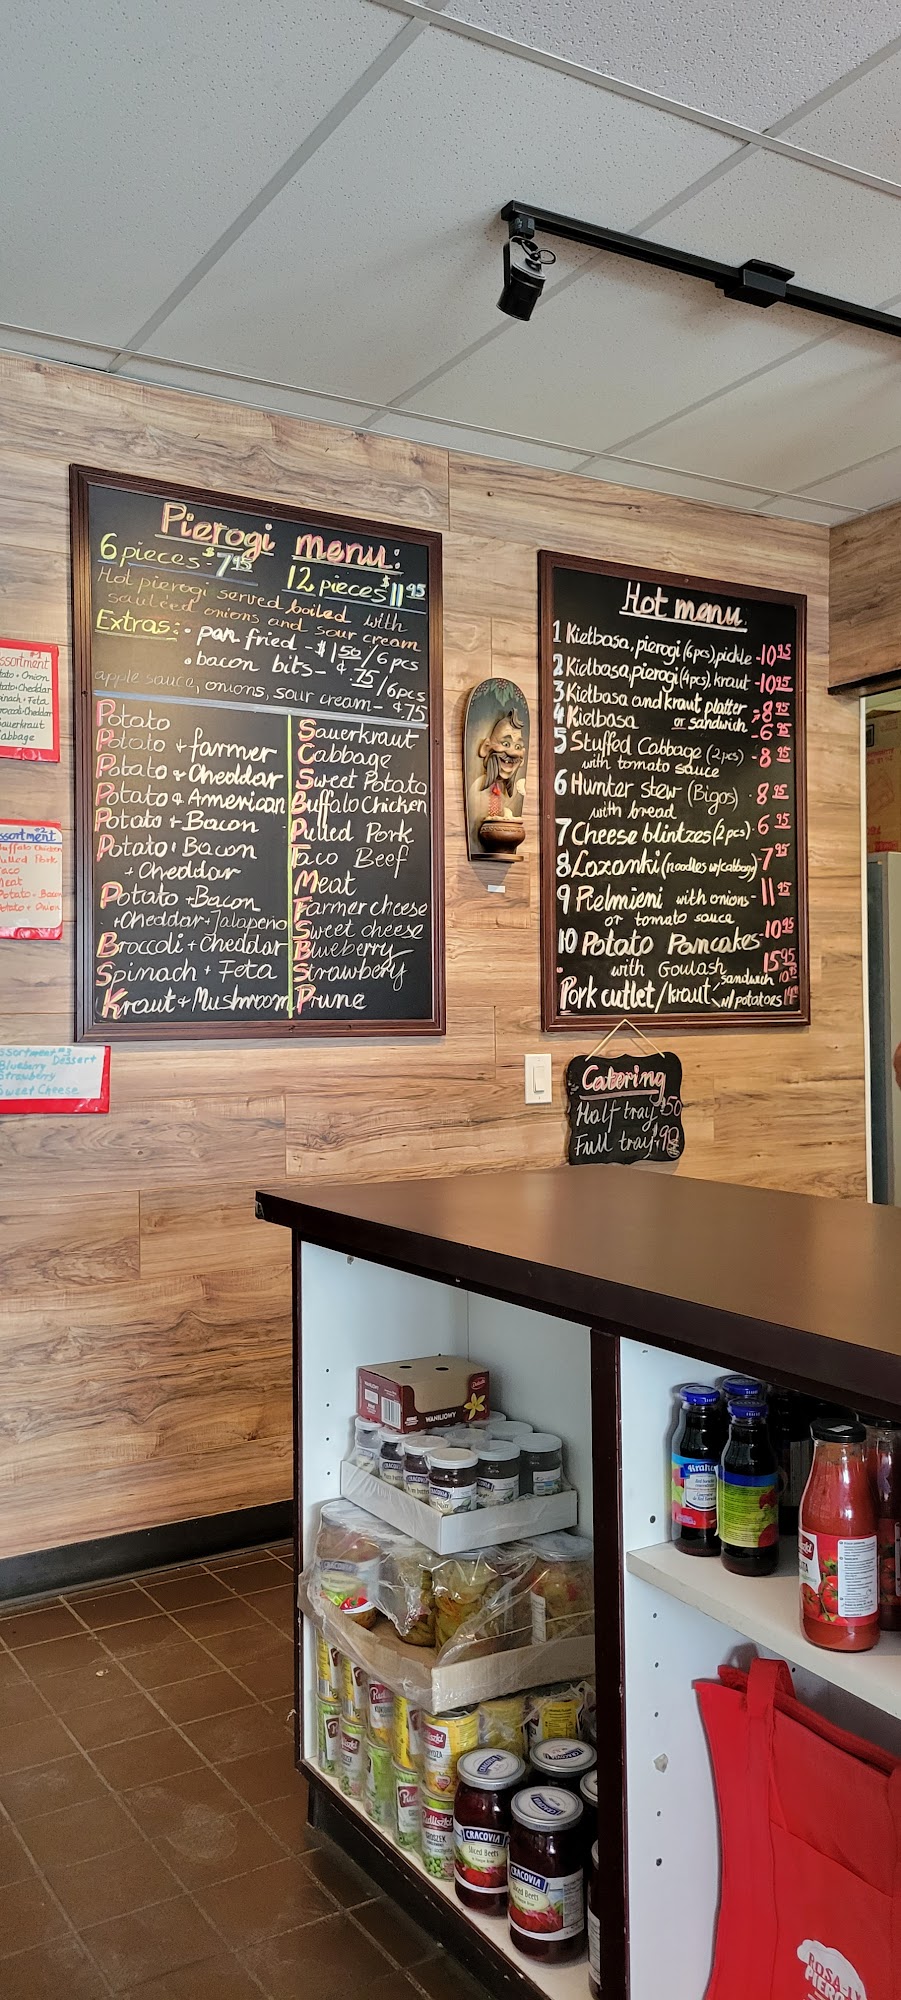 Pierogi menu:
6 pieces - $7.95
12 pieces $11.95
Hot pierogi served boiled with
sautéed onions and sour cream
Extras: • pan fried - $1.50/6 pcs
• bacon bits - ¢.75/6pcs
apple sauce, onions, sour cream - ¢.75
Potato
Potato + farmer
Potato & Cheddar
Potato & American
Potato + Bacon
Potato + Bacon
+ Cheddar
Potato + Bacon
+ Cheddar + Jalapeño
Broccoli + Cheddar
Spinach + Feta
Kraut & Mushroom
Sauerkraut
Cabbage
Sweet Potato
Buffalo Chicken
Pulled Pork
Taco Beef
Meat
Farmer cheese
Sweet cheese
Blueberry
Strawberry
Prune
Hot menu
1 Kielbasa, pierogi (6pcs), pickle - 10.95
2 Kielbasa, pierogi (4pcs), kraut - 10.95
3 Kielbasa and kraut platter - 8.95
4 Kielbasa or sandwich - 6.95
5 Stuffed Cabbage (2pcs) - 8.95
with tomato sauce
6 Hunter Stew (Bigos) - 8.95
with bread
7 Cheese blintzes (2 pcs) - 6.95
8 Lazanki (noodles w/cabbage) - 7.95
9 Pielmieni with onions - 11.95
or tomato sauce
10 Potato Pancakes - 10.95
with Goulash 15.95
Pork cutlet/kraut sandwich 10.95
w/potatoes 14.95
Catering
Half tray $50
Full tray $90
#1
Cheddar
Sauerkraut
#2
Buffalo Chicken
Pulled Pork
Taco
Meat
Potato + Bacon
Potato + Onion
#3 Dessert
Blueberry
Strawberry
Sweet Cheese
WANILIOWY
CRACOVIA
CRACOVIA
Pudliszki
GROSZEK
CRACOVIA
Sliced Beets
CRACOVIA
Sliced Beets
Krakus
ROSA-LY
PIERO